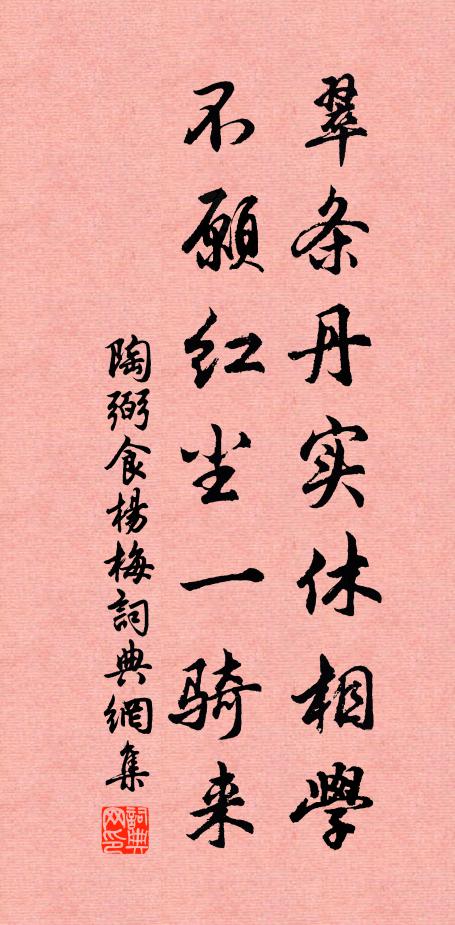 翠条丹实休相學
不願红尘一骑来
陶弼食楊梅詞典網集
詞典网印